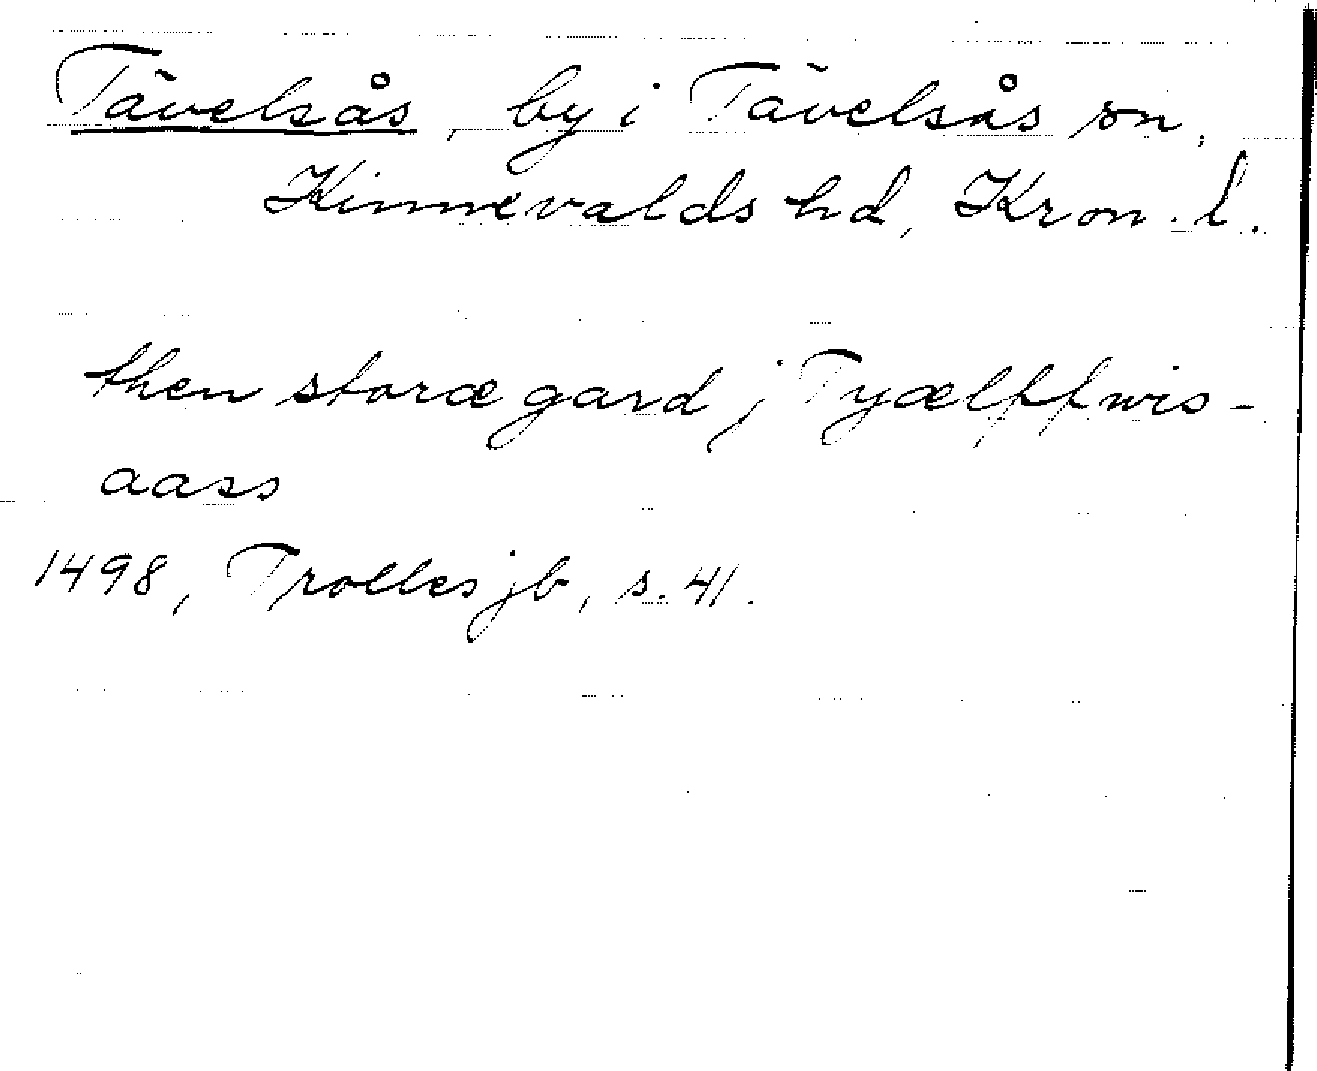 Tävelsås, by i Tävelsås sn,
Kinnevalds hd, Kron. l.
then storæ gard j Tyælffwis-
aass
1498, Trolles jb, s. 41.